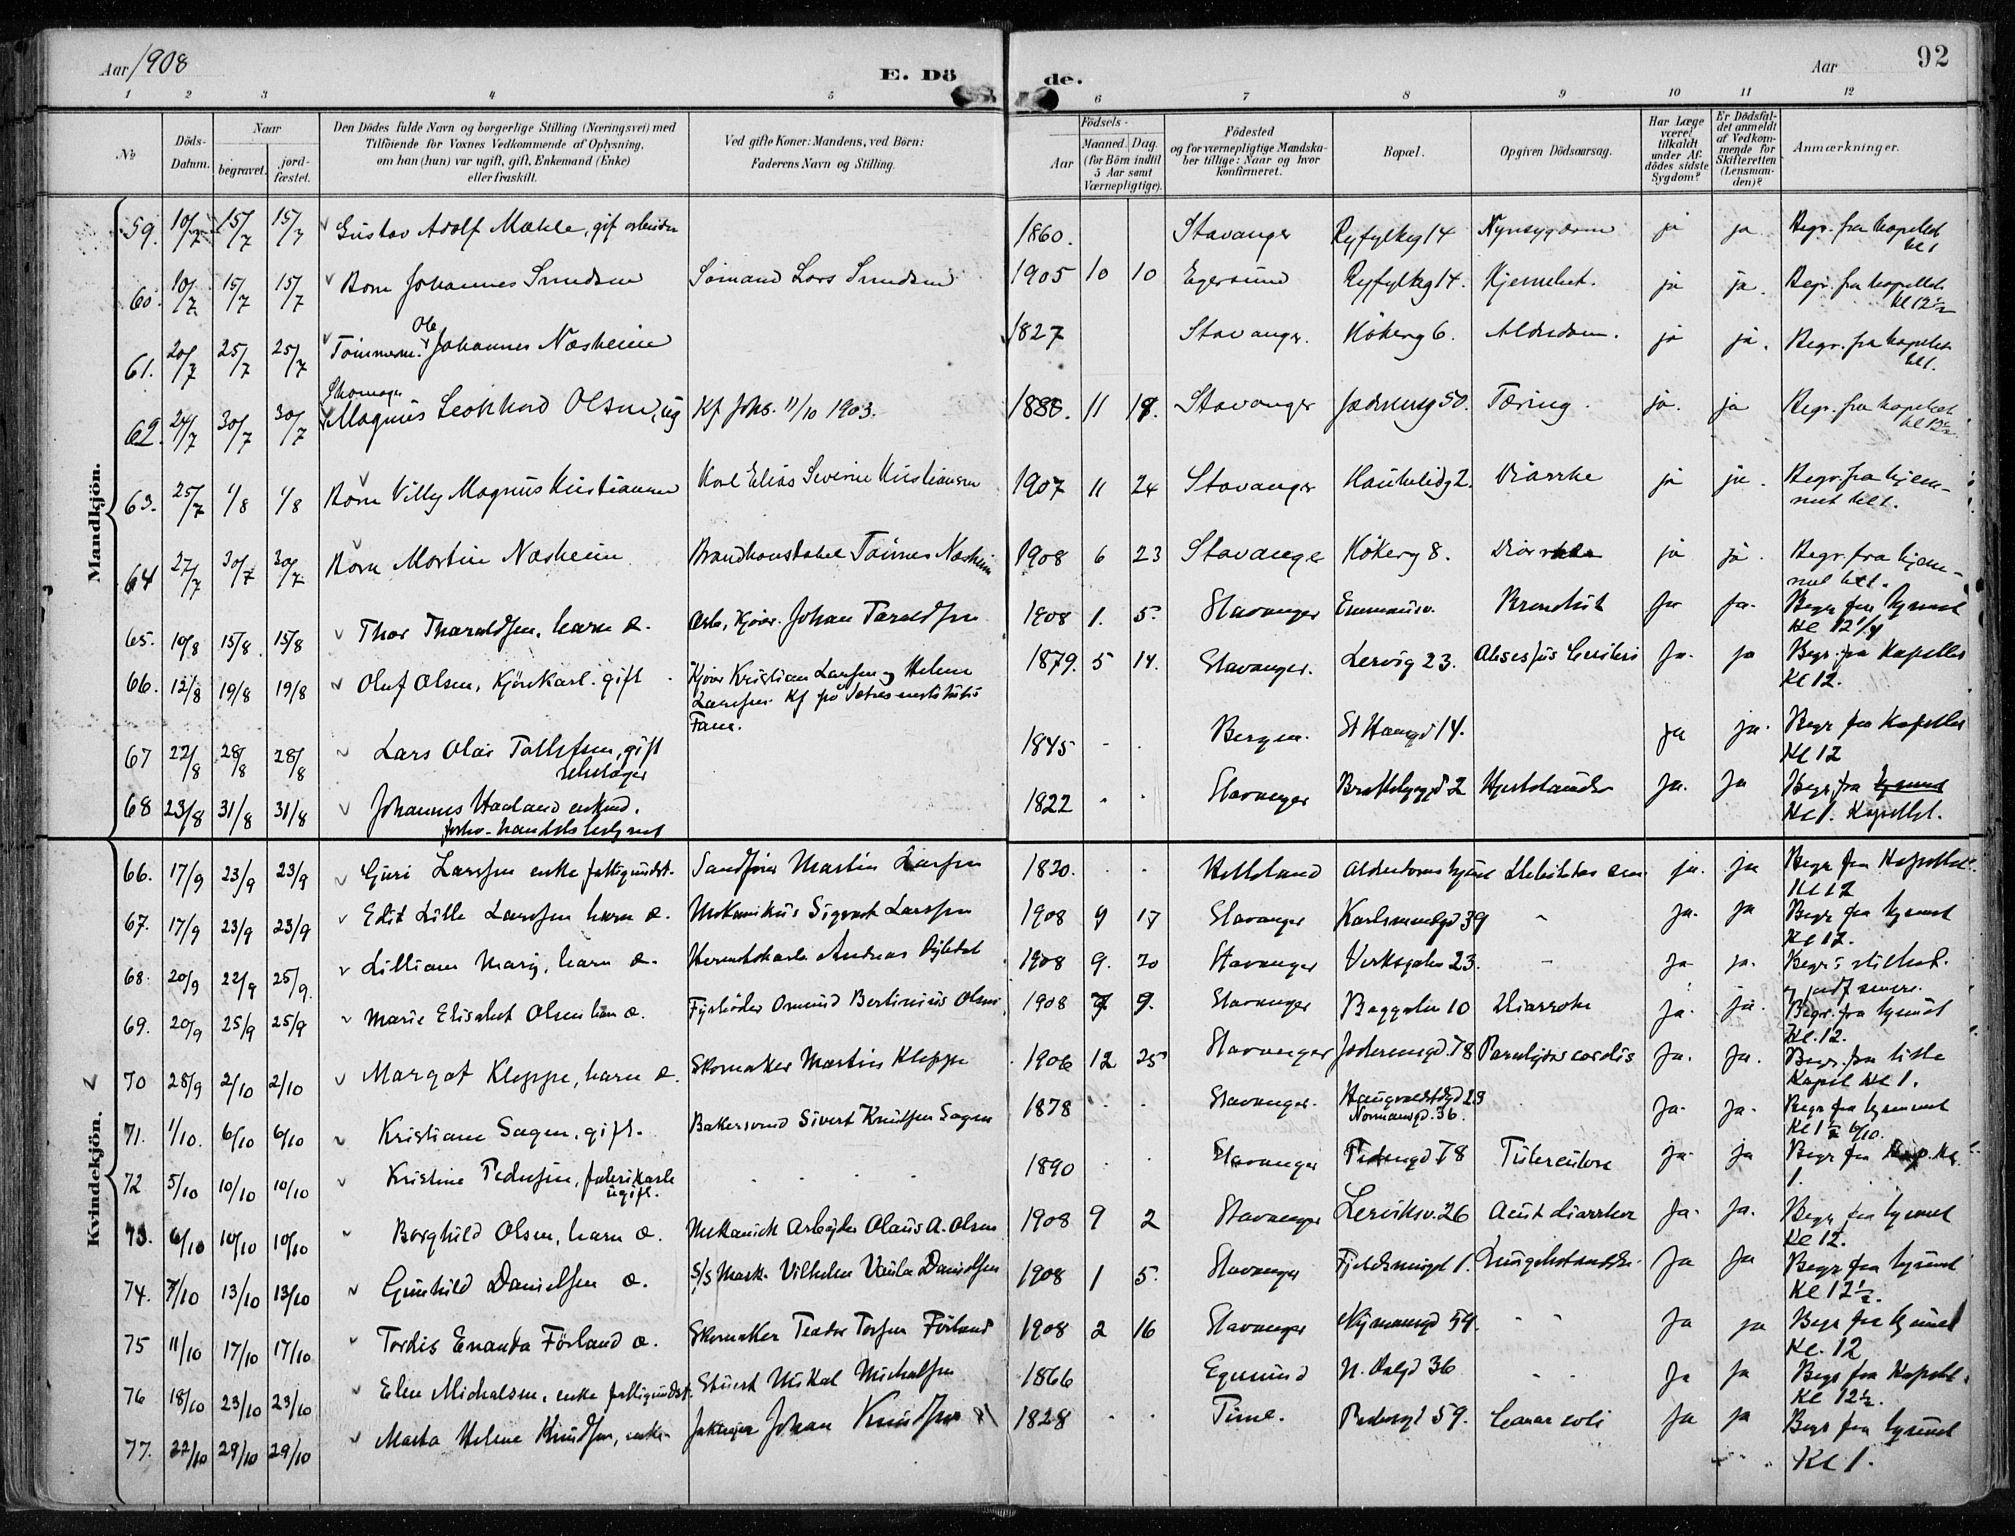 Aar 1908
E. Dö de.
Aar
92
1 2 3 4 5 6 7 8 9 10 11 12
No
Döds-Datum.
Naar
begravet.
jord-fæstet.
Den Dödes fulde Navn og borgerlige Stilling (Næringsvei) med
Tilföiende for Voxnes Vedkommende af Oplysning,
om han (hun) var ugift, gift, Enkemand (Enke)
eller fraskilt.
Ved gifte Koner: Mandens, ved Börn:
Faderens Navn og Stilling.
Födsels-
Aar
Maaned. Dag.
(for Börn indtil
5 Aar samt
Værnepligtige).
Födested
og for værnepligtige Mandska-
ber tillige: Naar og hvor
konfirmeret.
Bopæl.
Opgiven Dödsaarsag.
Har Læge
været
tilkaldt
under Af-
dödes sidste
Sygdom?
Er Dödsfal-
det anmeldt
af Vedkom-
mende for
Skifteretten
(Lensman-
den)?
Anmærkninger.
Mandkjön.
59. 10/7 15/7 15/7 Gustav Adolf Mæhle, gift arbeider 1860. Stavanger Ryfylkeg 14 Nyresygdom ja ja Begr. fra kapellet kl 1
60. 10/7 15/7 15/7 Barn Johannes Svendsen Sömand Lars Svendsen 1905 10 10 Egersund Ryfylkeg 14. ja ja. Begr. fra kapellet kl 12 1/2
61. 20/7 25/7 25/7 Tömmerm. Ole Johannes Næsheim 1827 Stavanger. Kökerg 6. Alderdom. ja ja. Begr. fra kapellet kl 1.
62. 24/7 30/7 30/7 Skomager Magnus Olsen, ug Kf Johs. 11/10 1903. 11 18. Stavanger Jædernveg 50. Tæring. ja. ja Begr. fra kapellet kl 12 1/2
63. 25/7 1/8 1/8 Barn Villy Magnus Kristiansen Karl Elias Severin Kristiansen 1907 11 24 Stavanger Haukelidg 2. Diarrhe ja ja. Begr. fra hjem-
met kl 1.
64 27/7 30/7 30/7 Barn Martin Næsheim Brandkonstabel Tönnes Næsheim 1908 6 23 Stavanger Kökerg 8. Diarrhe ja ja. Begr. fra hjem-
met kl 1.
65. 10/8 15/8 15/8 Thor Tharaldsen, barn æ. Arb, Kjörer. Johan Taraldsen 1908 1. 5. Stavanger Emmausv. Bronchit ja ja. Begr. fra hjemmet
Kl 12 1/4
66. 12/8 19/8 19/8 Oluf Olsen, Kjörekarl. gift Kjörer Kristian Larsen og Helene
Larsen. Kf på
Fane. 1879. 5 14. Stavanger. Lervig 23. ja. ja Begr. fra Kapellet
Kl 12.
67 22/8 28/8 28/8 Lars Olai Tollefsen, gift 1845 Bergen. St Hansgd 14. ja ja. Begr fra Kapellet
Kl 12
68 23/8 31/8 31/8 Johannes Haaland enkmd.
forhv. handelsbetjent 1822 Stavanger 2 ja. ja Begr. fra hjemmet
Kl 1. Kapellet.
Kvindekjön.
66. 17/9 23/9 23/9 Guri Larsen enke fattigunderst. Martin Larsen 1820. Helleland Alderdomshjem Debilitas sen ja. ja Begr fra Kapellet
Kl 12
67. 17/9 23/9 23/9 Edit Lille Larsen barn æ. Mekanikus Sigvart Larsen 1908 9 17 Stavanger Karlsmindegd 39 ja. ja Begr fra hjemmet
Kl 12.
68. 20/9 22/9 25/9. Lilliam Marg, barn æ. Hermetikarb. Andreas 1908 9. 20 Stavanger Verksgaten 23. ja ja. Begr i stilhet.
og jordf senere.
69. 20/9 25/9 25/9 Marie Elisabet Olsen barn æ. Fyrböder Osmund Bertinius Olsen 1908 9. Stavanger Baggaten 10 Diarrohe ja. ja. Begr. fra hjemmet
Kl. 12.
70 28/9 2/10 2/10 Margot Kleppe, barn æ. Skomaker Martin Kleppe 1906 12 25 Stavanger Jæderengd. 78 Paralysis cordis ja. ja. Begr. fra lille
Kapel Kl 1.
71. 1/10. 6/10 6/10 Kristiane Sagen, gift. Bakersvend Sivert Knutsen Sagen 1878 Stavanger. Haugvaldstdgd 23
Normansgd. 36. ja. ja. Begr fra hjemmet
Kl 1 1/2 6/10.
72 5/10 10/10 10/10 Kristine Pedersen, fabrikarb
ugift. 1890 Stavanger 78 Tuberculose ja. ja Begr fra Kap. Kl
1.
73. 6/10 10/10 10/10 Borghild Olsen, barn æ. Mekanisk Arbejder Olaus A. Olsen 1908 9 2 Stavanger Lerviksv. 26 Acut diarrhoe ja. ja. Begr. fra hjemmet
Kl 12.
74. 7/10 13/10 13/10 Gunhild Danielsen æ. S/S Mask. Vilhelm Danielsen 1908 1 5. Stavanger 1. Lungebetændelse ja ja Begr. fra hjemmet
Kl 12 1/2.
75 11/10 17/10 17/10 Tordis Enanda Förland æ. Skomaker Teodor Förland 1908 2 16 Stavanger Nymansgd 59. ja ja Begr fra hjemmet
Kl. 12
76 18/10 23/10 23/10 Elen Michalsen, enke fattigunderst. Stuert Mikal Michalsen 1866 Egersund 36 ja ja Begr fra Kapellet.
Kl 12 1/2.
77. 22/10 29/10 29/10 Marta Helene Knudsen, enke Johan Knudsen 1828 Time. 59. Cancer coli ja ja Begr fra hjemmet
Kl 1.